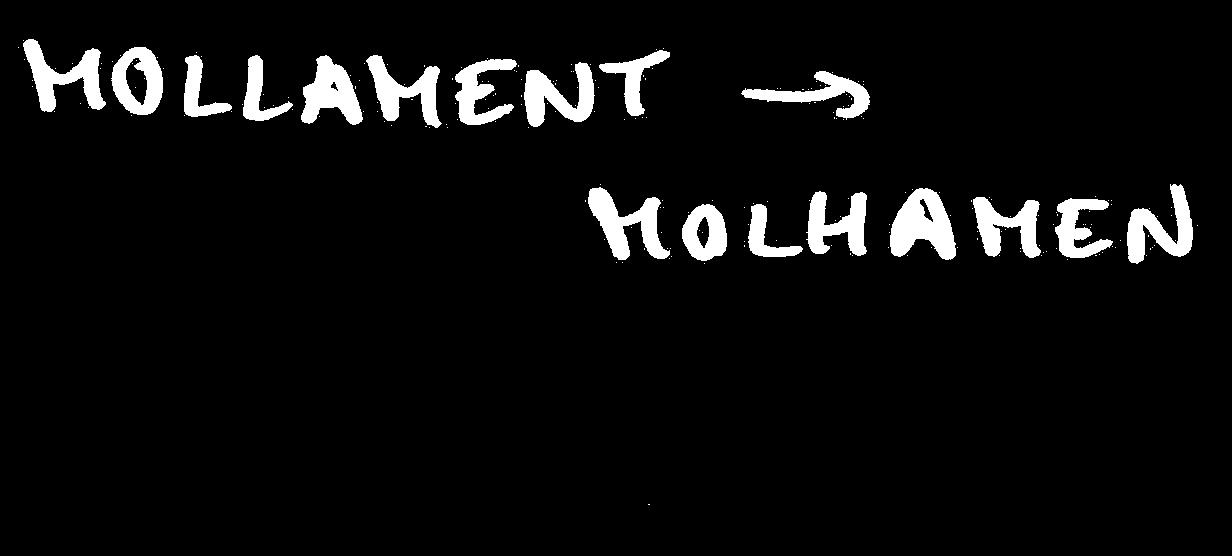 MOLLAMENT →
MOLHAMEN